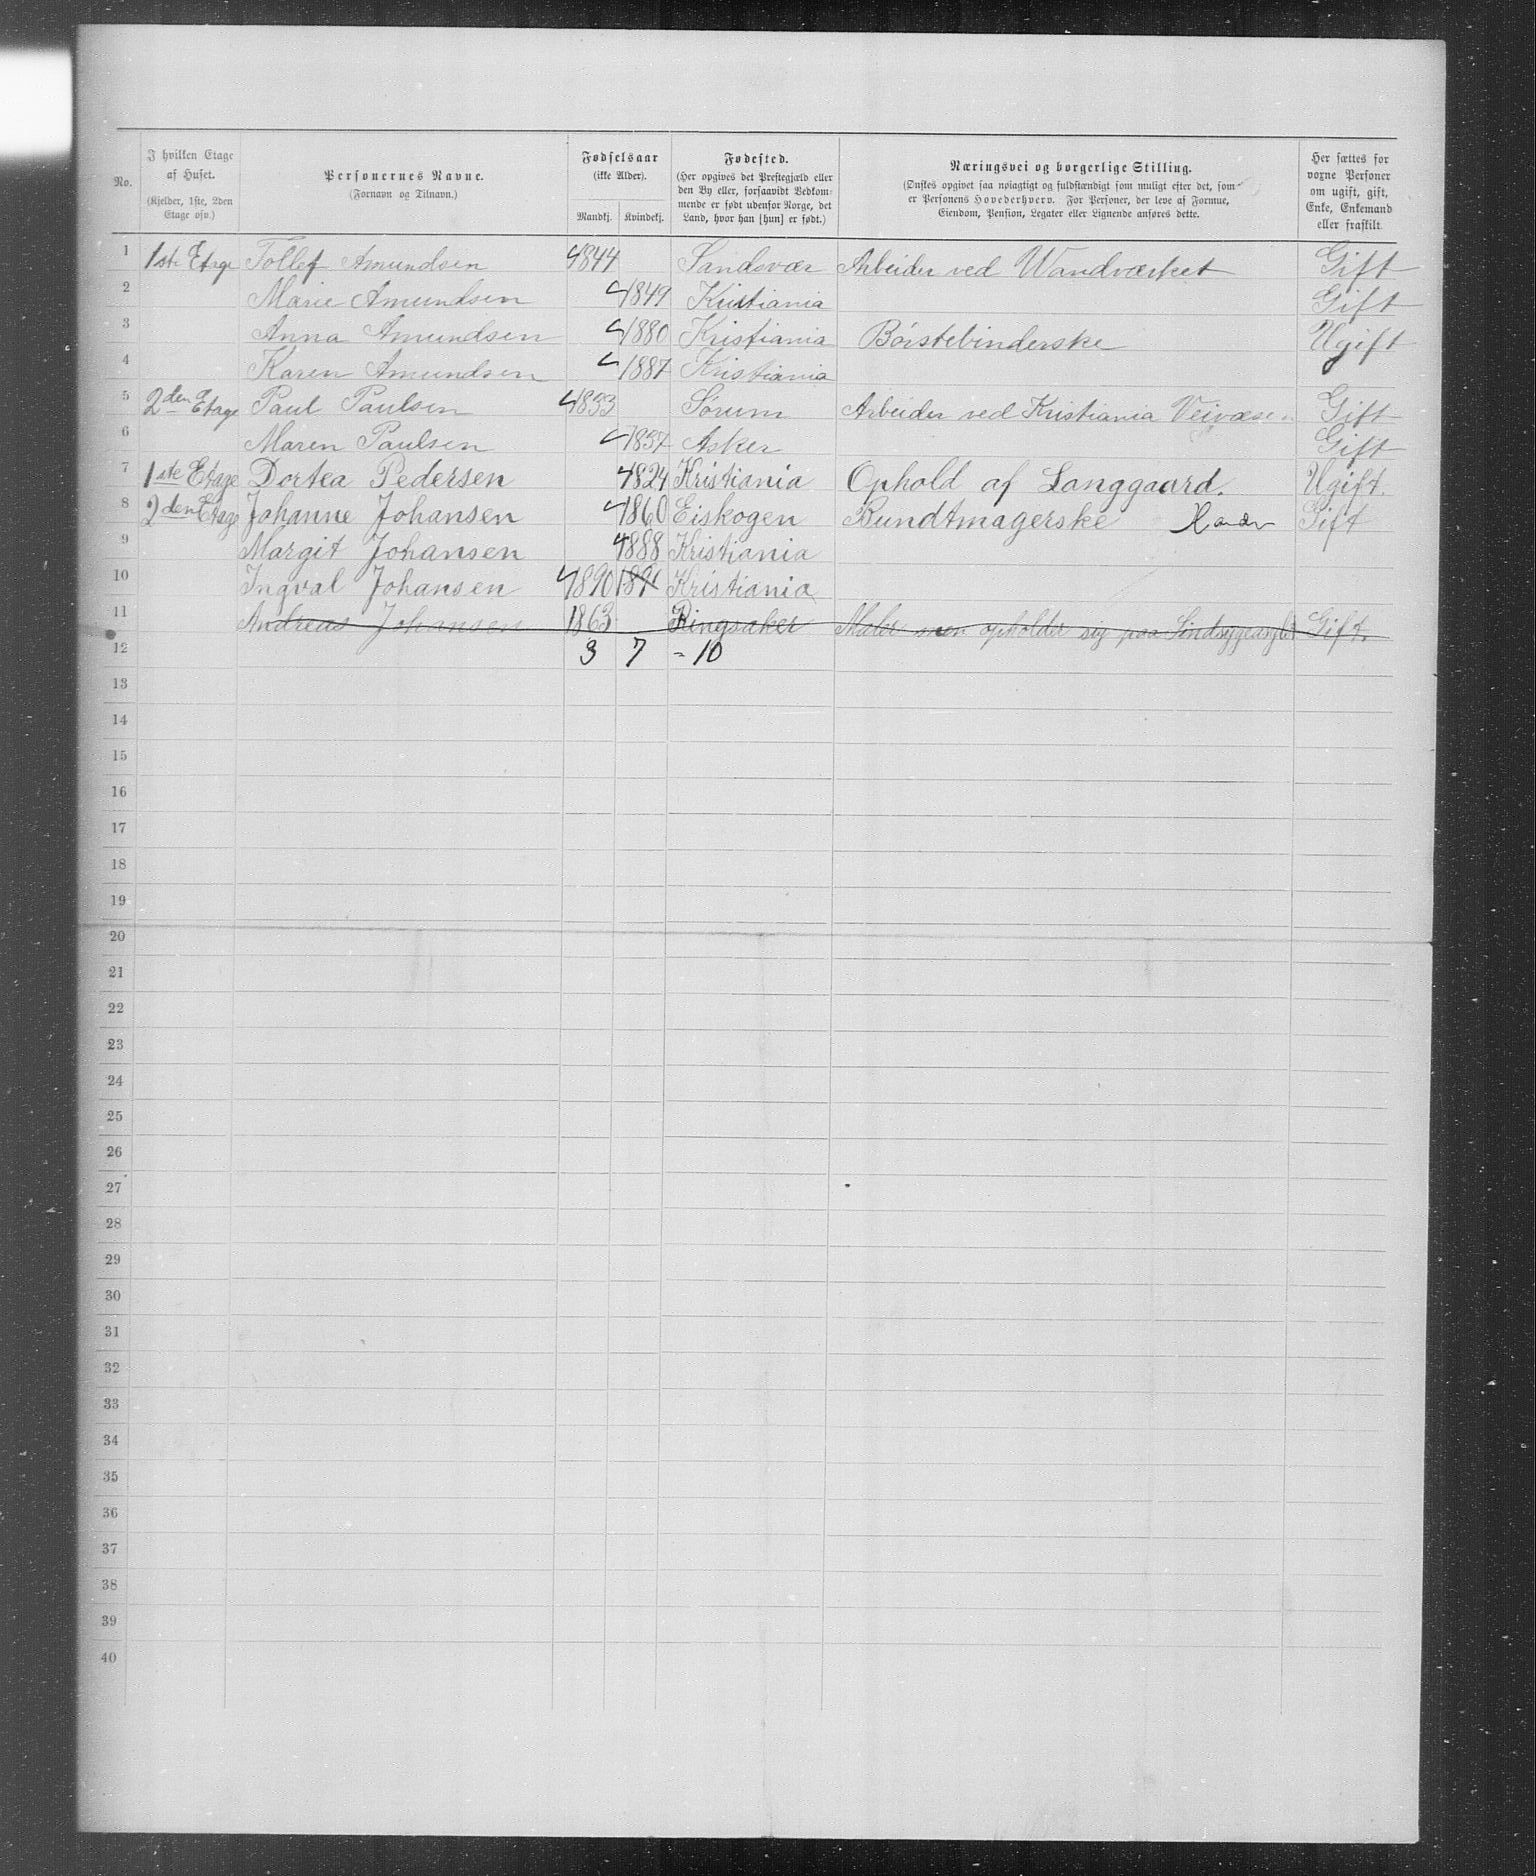 No.
I hvilken Etage af Huset.
(Kjelder, 1ste, 2den Etage osv.)
Personernes Navne.
(Fornavn og Tilnavn.)
Fødselsaar
(ikke Alder).
Mandkj.
Kvindekj.
Fødested.
(Her opgives det Prestegjæld eller den By eller, forsaavidt Vedkommende er født udenfor Norge, det Land, hvor han [hun] er født.)
Næringsvei og borgerlige Stilling.
(Ønskes opgivet saa nøiagtigt og fuldstændigt som muligt efter det, som er Personens Hovederhverv. For Personer, der leve af Formue, Eiendom, Pension, Legater eller Lignende anføres dette.
Her sættes for voxne Personer om ugift, gift, Enke, Enkemand eller fraskilt.
1 1ste Etage Tollef Amundsen 1844 Sandsvær Arbeider ved Wandværket Gift
2 Marie Amundsen 1849 Kristiania Gift
3 Anna Amundsen 1880 Kristiania Børstebinderske Ugift
4 Karen Amundsen 1887 Kristiania
5 2den Etage Paul Paulsen 1833 Sørum Arbeider ved Kristiania Veivæsen Gift
6 Maren Paulsen 1837 Asker Gift
7 1ste Etage Dortea Pedersen 1824 Kristiania Ophold af Langgaard. Ugift.
8 2den Etage Johanne Johansen 1860 Eiskogen Bundtmagerske Gift
9 Margit Johansen 1888 Kristiania
10 Ingval Johansen 1890 1891 Kristiania
11 Andreas Johansen 1863 Ringsaker Maler men opholder sig paa Sindsygeasylet Gift.
12 3 7 = 10
13
14
15
16
17
18
19
20
21
22
23
24
25
26
27
28
29
30
31
32
33
34
35
36
37
38
39
40